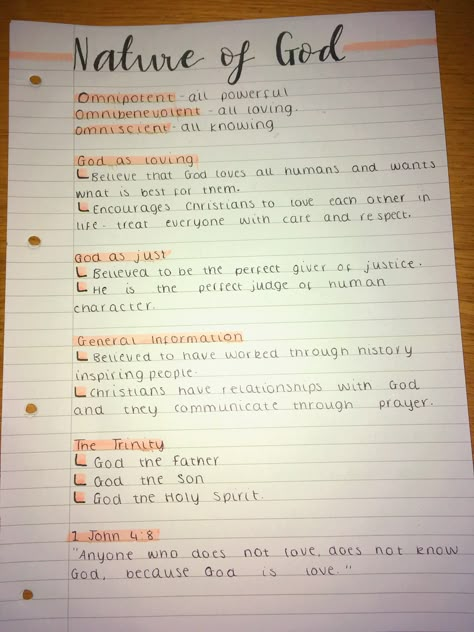 Nature of God
Omnipotent - all powerful
Omnibenevolent - all loving.
omniscient - all knowing
God as loving
Believe that God loves all humans and wants
what is best for them.
Encourages Christians to love each other in
life - treat everyone with care and respect.
God as just
Believed to be the perfect giver of justice.
He is the perfect judge of human
character.
General Information
Believed to have worked through history
inspiring people.
Christians have relationships with God
and they communicate through prayer.
The Trinity
God the Father
God the Son
God the Holy Spirit.
1 John 4:8
"Anyone who does not love, does not know
God, because God is love."